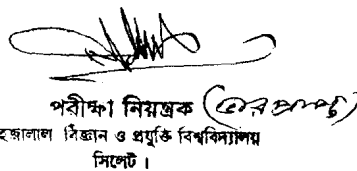 পরীক্ষা নিয়ন্ত্রক (ভারপ্রাপ্ত)
হজালাল বিজ্ঞান ও প্রযুক্তি বিশ্ববিদ্যালয়
সিলেট ।